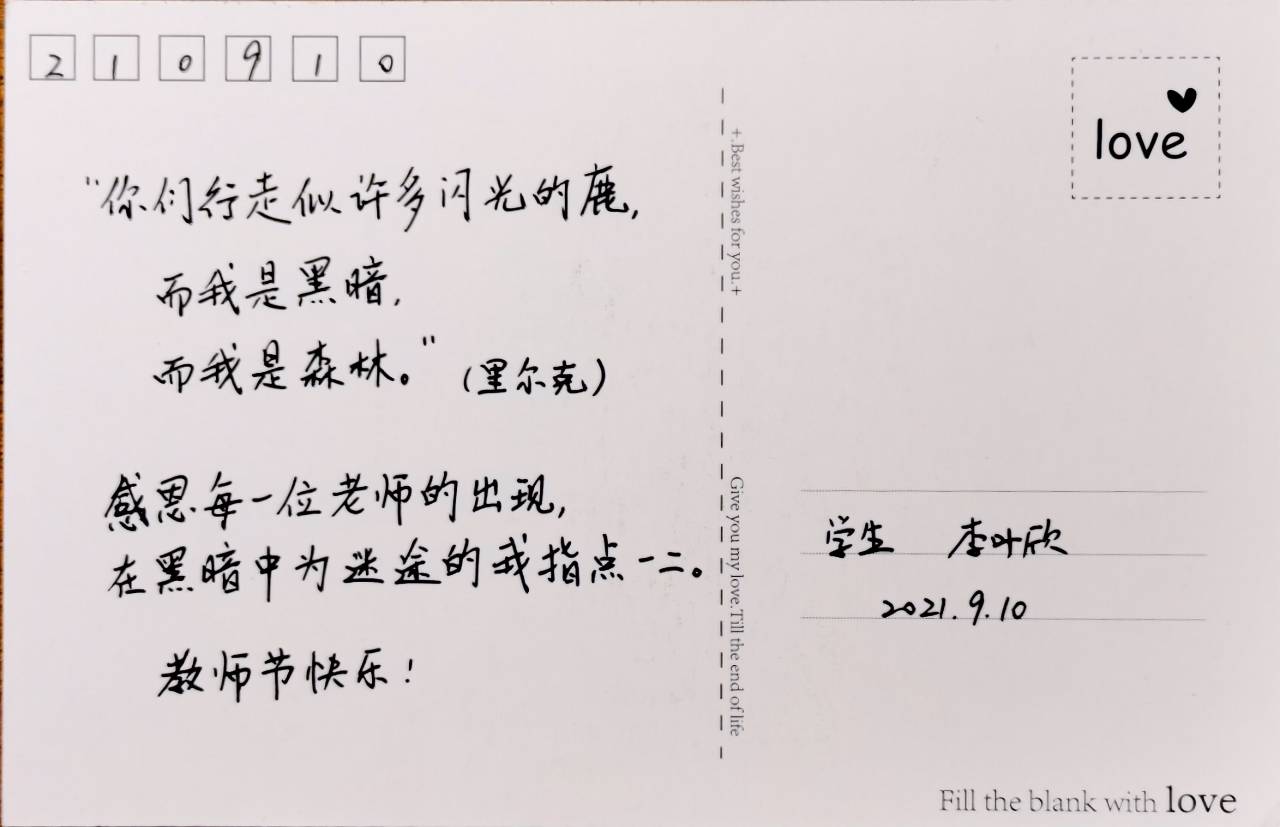 210910
"你们行走似许多闪光的鹿,
而我是黑暗,
而我是森林。"(里尔克)
感恩每一位老师的出现,
在黑暗中为迷途的我指点一二。
教师节快乐!
+.Best wishes for you.+
Give you my love.Till the end of life
love
学生 李叶欣
2021.9.10
Fill the blank with love